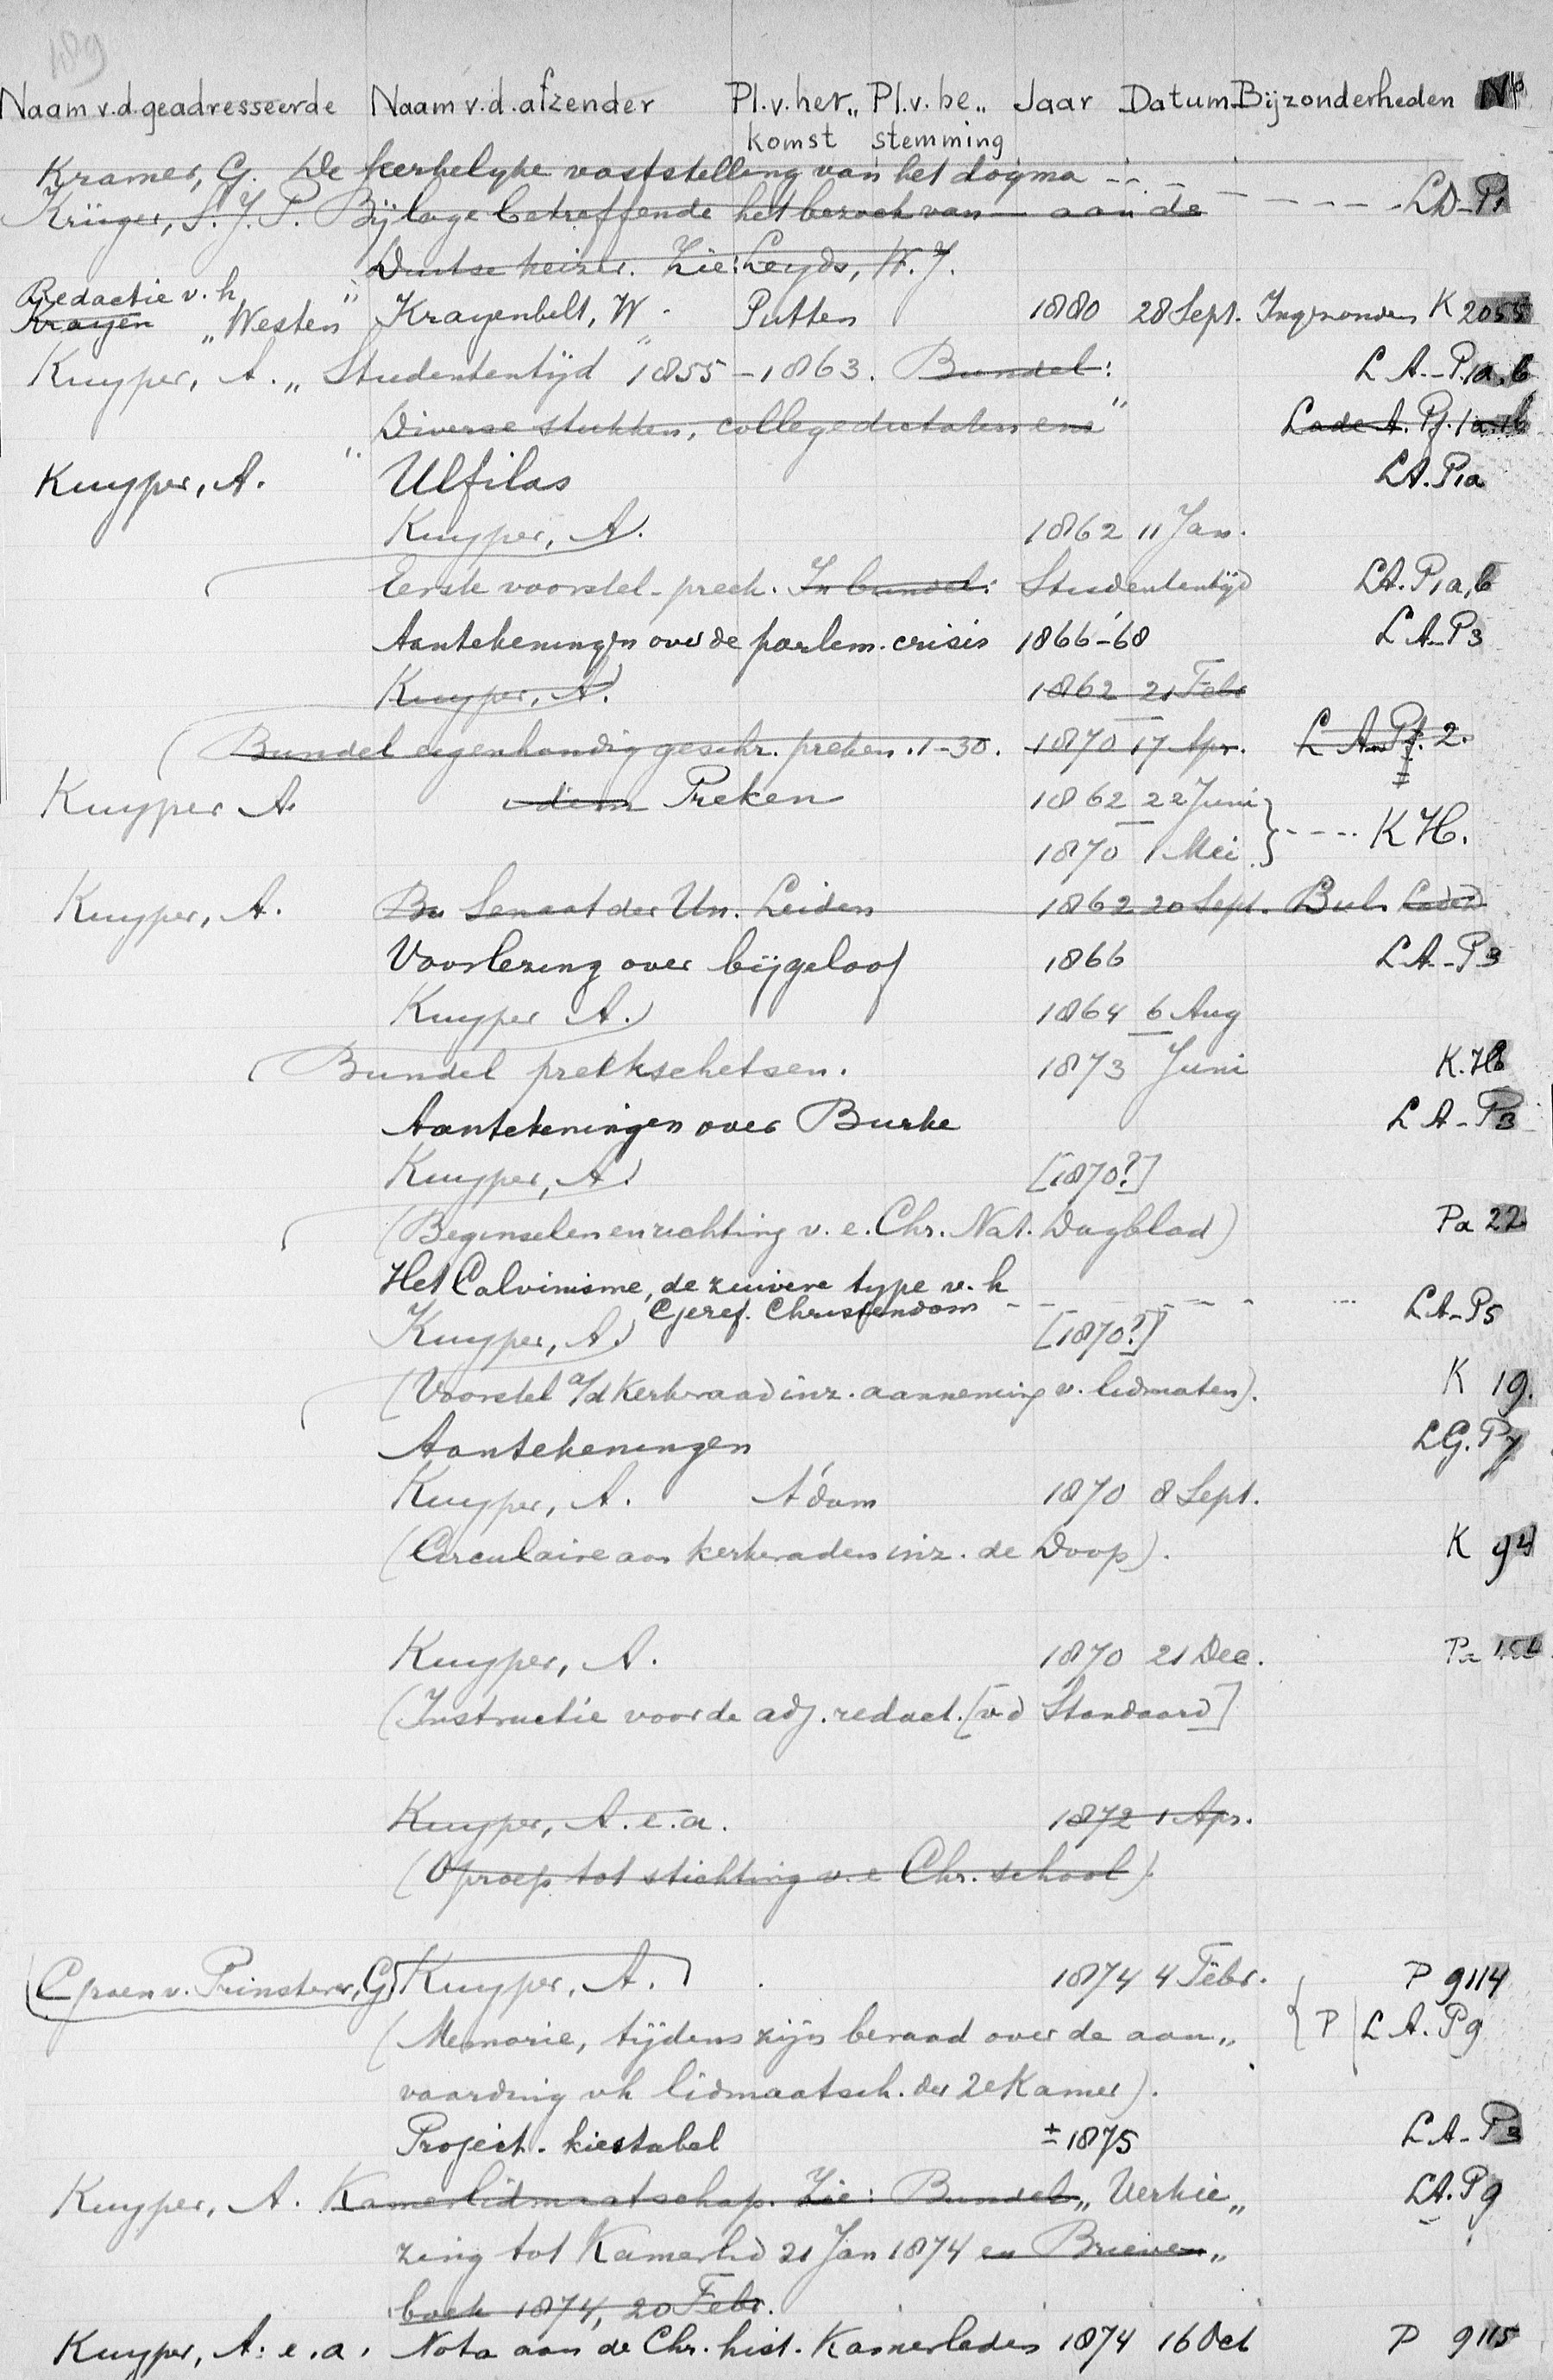 189
Naam v.d. geadresseerde Naam v.d. afzender Pl. v. her„ Pl. v. be„ Jaar Datum Bijzonderheden No
komst stemming
Kramer, G. De kerkelyke vaststelling van het dogma
Krüger, S.J.P. Bijlage betreffende het bezoek van — aan de LD-P1
Duitse keizer. Zie: Leyds, W.J.
Redactie v. h.
Krayen „Westen" Krayenbelt, W. Putten 1880 28 Sept. Ingezonden K 2055
Kuyper, A. „Studententijd 1855-1863. Bundel: L A.-P.1a,b
Diverse stukken, collegedictaten enz" Lade A. Pf. 1a.1b
Kuyper, A. Ulfilas LA. P1a
Kuyper, A. 1862 11 Jan.
Eerste voorstel-preek. In bundel: Studententijd LA. P1a,b
Aantekeningen over de parlem. crisis 1866-'68 L A-P3
Kuyper, A. 1862 21 Febr
(Bundel eigenhandig geschr. preken. 1-30. 1870 17 Apr. L A. Pf. 2.
Kuyper A. idem Preken 1862 22 Juni
1870 1 Mei } ---- K H.
Kuyper, A. Bu Senaat der Un. Leiden 1862 20 Sept. Bul.
Voorlezing over bijgeloof 1866 L A-P3
Kuyper A. 1864 6 Aug
(Bundel preekschetsen. 1873 Juni K.H
Aantekeningen over Burke L A-P3
Kuyper, A. [1870?]
(Beginselen en richting v. e. Chr. Nat. Dagblad) Pa 22
Het Calvinisme, de zuivere type v. h
Geref. Christendom L A-P5
Kuyper, A. [1870?]
(Voorstel a/d Kerkeraad inz. aanneming v. lidmaten). K 19.
Aantekeningen LG. P7
Kuyper, A. A'dam 1870 8 Sept.
(Circulaire aan kerkeraden inz. de Doop). K 94
Kuyper, A. 1870 21 Dec. Pa
(Instructie voor de adj. redact. [v.d Standaard]
Kuyper, A. e. a. 1872 1 Apr.
(Oproep tot stichting v. e Chr. school).
[Groen v. Prinsterer, G] Kuyper, A. 1874 4 Febr. P 9114
(Memorie, tijdens zijn beraad over de aan„ { P L A. P9
vaarding vh lidmaatsch. der 2e Kamer).
Project-kiestabel ± 1875 L A-P3
Kuyper, A. Kamerlidmaatschap. Zie: Bundel „Verkie„ LA. P9
zing tot Kamerlid 21 Jan 1874 en Brieven„
boek 1874, 20 Febr.
Kuyper, A. e. a. Nota aan de Chr. hist. Kamerleden 1874 16 Oct P 9115